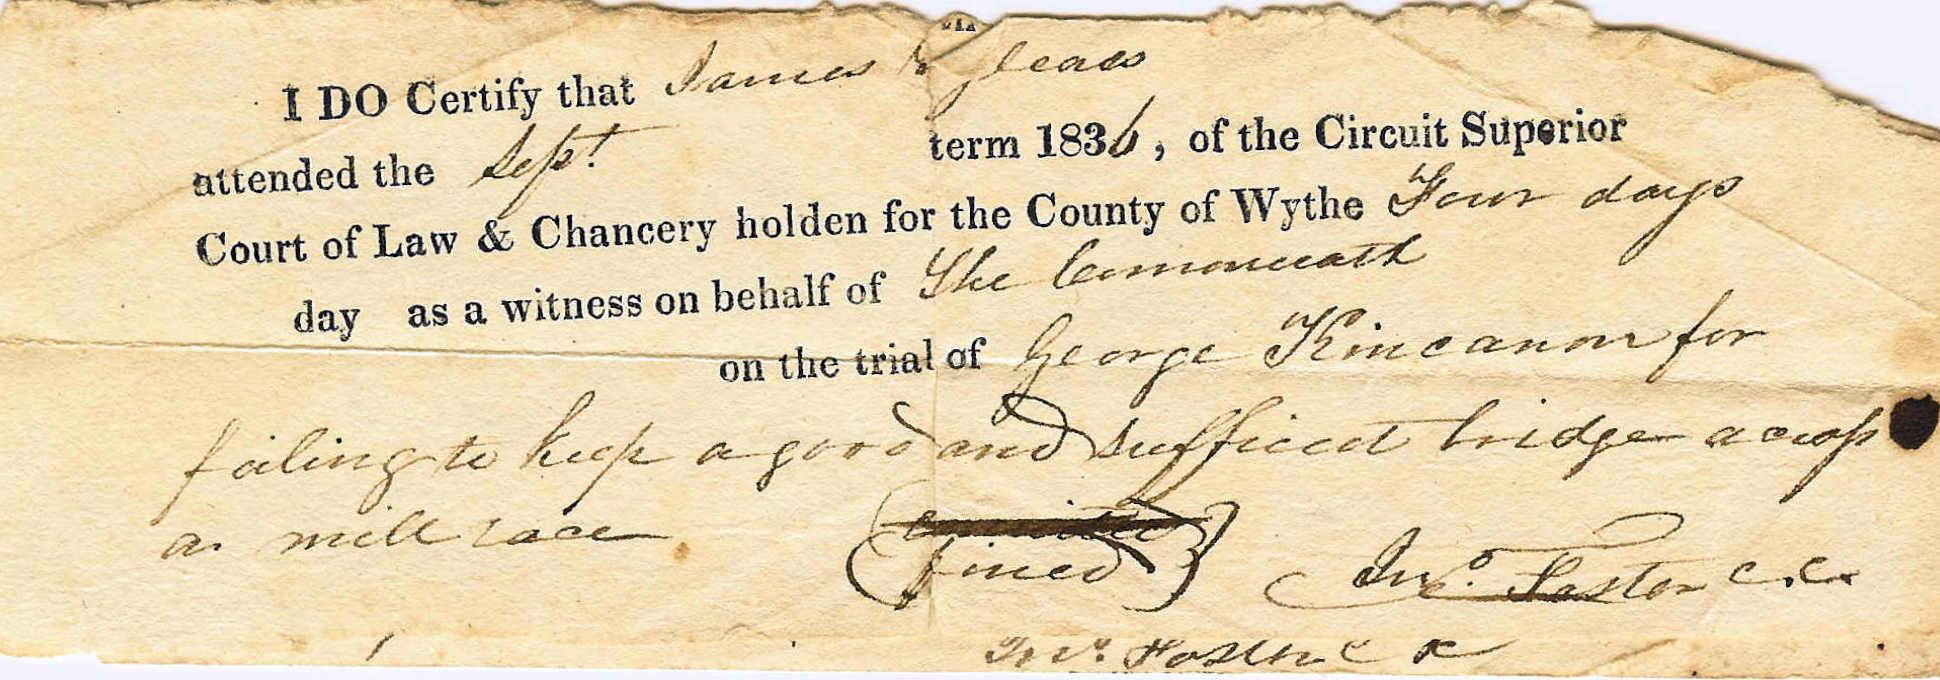 I DO Certify that James
attended the Sept term 1836, of the Circuit Superior
Court of Law & Chancery holden for the County of Wythe Four days
day as a witness on behalf of The Comonweath
on the trial of George Kincannon for
failing to keep a good and sufficient bridge across
a mill race
fined Jno. Foster C.C.
Jno. Foster C K